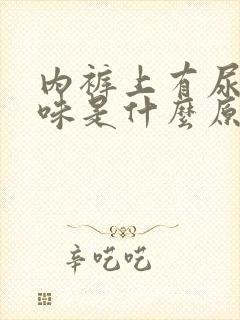 内裤上有尿
味是什麼原
辛吃吃